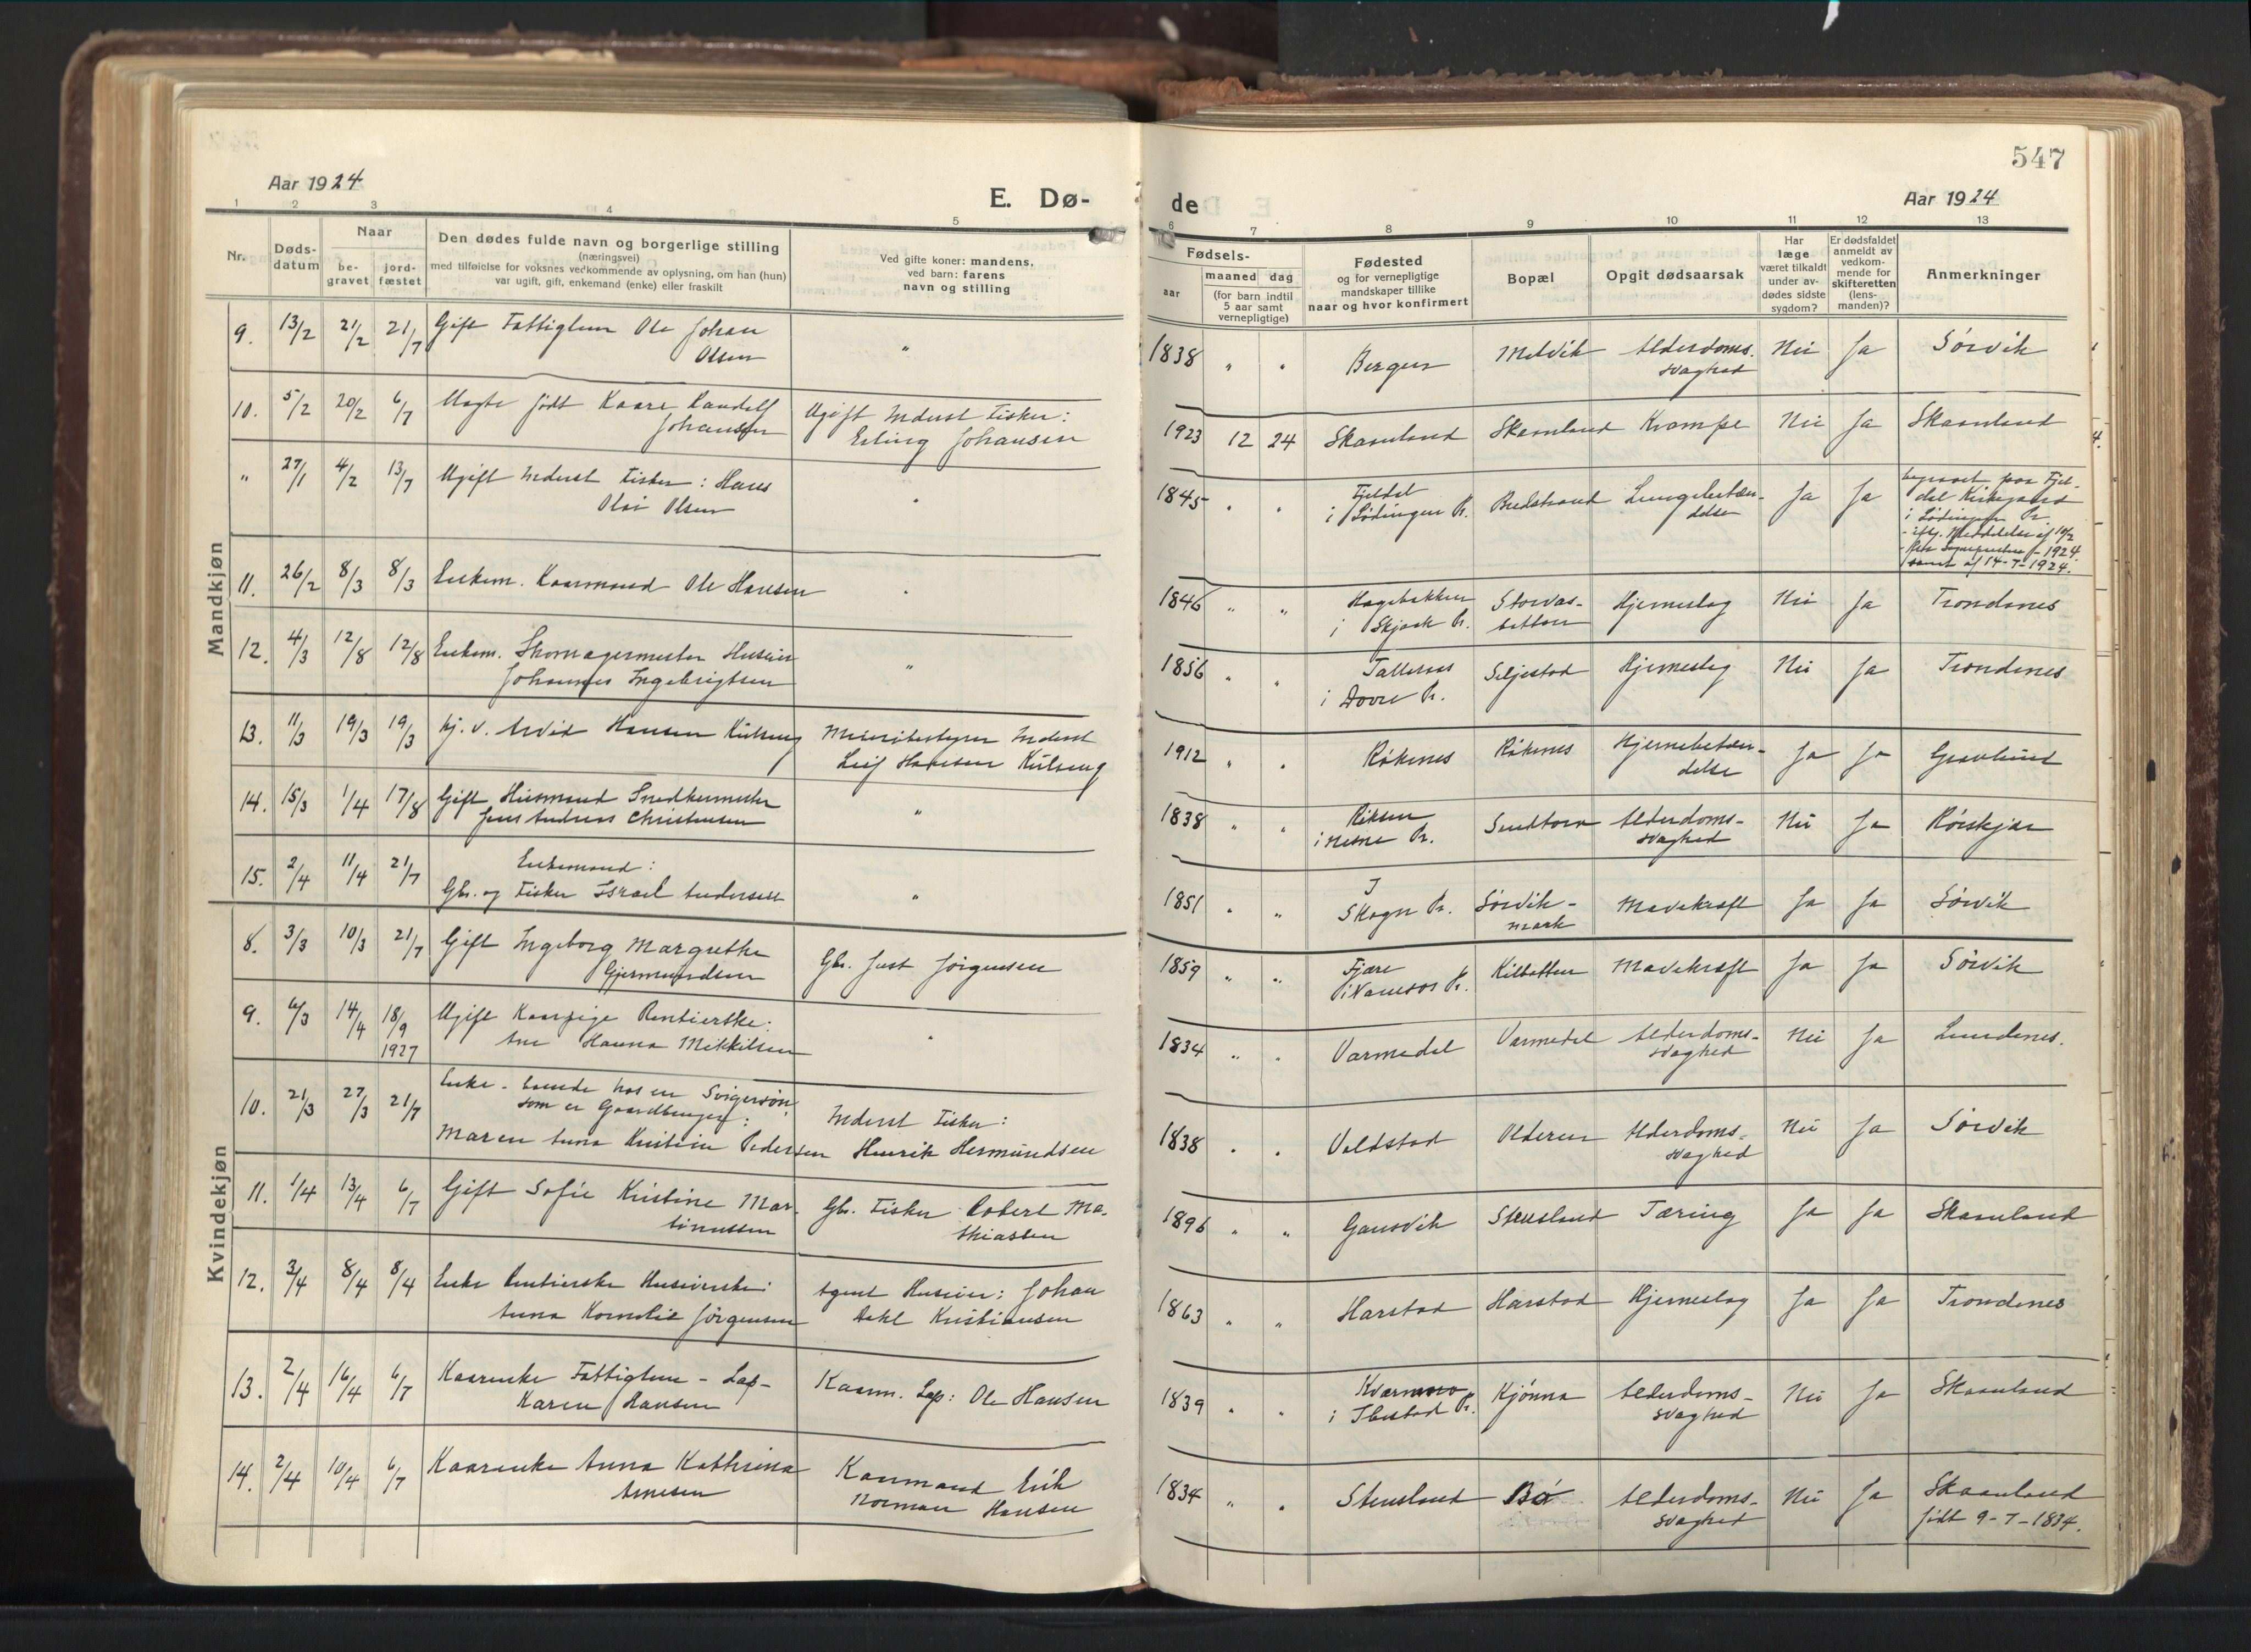 Aar 1924
E. Dø-
1 2 3 4 5
Nr.
Døds-
datum
Naar
be-
gravet
jord-
fæstet
Den dødes fulde navn og borgerlige stilling
(næringsvei)
med tilføielse for voksnes vedkommende av oplysning, om han (hun)
var ugift, gift, enkemand (enke) eller fraskilt
Ved gifte koner: mandens,
ved barn: farens
navn og stilling
Mandkjøn
9. 13/2 21/2 21/7 Gift Fattiglem Ole Johan
Olsen "
10. 5/2 20/2 6/7 Uægte født Kaare Randolf
Johansen
Ugift Inderst Fisker:
Erling Johansen
" 27/1 4/2 13/7 Ugift Inderst Fisker: Hans
Olai Olsen "
11. 26/2 8/3 8/3 Enkem. Kaarmand Ole Hansen "
12. 4/3 12/8 12/8 Enkem. Skomagermester Huseier
Johannes Ingebrigtsen "
13. 11/3 19/3 19/3 hj. d. Arvid Hansen Kulseng
Meieribestyrer Inderst
Leif Hansen Kulseng
14. 15/3 1/4 17/8 Gift Husmand Snedkermester
Jens Andreas Christensen "
15. 2/4 11/4 21/7 Enkemand:
Gbr. og Fisker Israel Andersen "
Kvindekjøn
8. 3/3 10/3 21/7 Gift Ingeborg Margrethe
Gjermundsen
Gbr. Just Jørgensen
9. 6/3 14/4 18/9 1927 Ugift Kaarpige Rentierske:
Ane Hanna Mikkelsen "
10. 21/3 27/3 21/7 Enke - boende hos en Svigersøn,
som er Gaardbruger:
Maren Anna Kristine Pedersen
Inderst Fisker:
Henrik Hermundsen
11. 1/4 13/4 6/7 Gift Sofie Kristine Mar-
tinussen
Gbr. Fisker Robert Ma-
thiassen
12. 3/4 8/4 8/4 Enke Rentierske Huseierske:
Anna Kornelie Jørgensen
Agent Huseier: Johan
Dahl Kristiansen
13. 2/4 16/4 6/7 Kaarenke Fattiglem - Lap-
Karen Hansen
Kaarm. Lap: Ole Hansen
14. 2/4 10/4 6/7 Kaarenke Anna Kathrina
Arnesen
Kaarmand Erik
Norman Hansen
547
de
Aar 1924
6 7 8 9 10 11 12 13
Fødsels-
aar
maaned dag
(for barn indtil
5 aar samt
vernepligtige)
Fødested
og for vernepligtige
mandskaper tillike
naar og hvor konfirmert
Bopæl
Opgit dødsaarsak
Har
læge
været tilkaldt
under av-
dødes sidste
sygdom?
Er dødsfaldet
anmeldt av
vedkom-
mende for
skifteretten
(lens-
manden)?
Anmerkninger
1838 " " Bergen Melvik Alderdoms-
svaghed Nei Ja Sørvik
1923 12 24 Skaanland Skaanland Krampe Nei Ja Skaanland
1845 " " Fjeldal
i Lødingen Pr. Bredstrand Lungebetæn-
delse Ja Ja
begravet paa Fjel-
dal Kirkegaard
i Lødingen Pr.
samt af 14-7-1924.
1846 " "
i Skjaak Pr. Storvas-
botten Hjerneslag Nei Ja Trondenes
1856 " "
i Dovre Pr. Seljestad Hjerneslag Nei Ja Trondenes
1912 " " Røkenes Røkenes Hjernebetæn-
delse Ja Ja Gravlund
1838 " "
i Nesne Pr. Sandtorv Alderdoms-
svaghed Nei Ja Rørskjær
1851 " " I
Skogn Pr. Sørvik-
mark Mavekræft Ja Ja Sørvik
1859 " " Fjære
i Namsos Pr. Kilbotten Mavekræft Ja Ja Sørvik
1834 " " Varmedal Varmedal Alderdoms-
svaghed Nei Ja Lundenes.
1838 " " Voldstad Olderen Alderdoms-
svaghed Nei Ja Sørvik
1896 " " Gausvik Stensland Tæring Ja Ja Skaanland
1863 " " Harstad Harstad Hjerneslag Ja Ja Trondenes
1839 " "
i Ibestad Pr. Kjønna Alderdoms-
svaghed Nei Ja Skaanland
1834 " " Stensland Bø Alderdoms-
svaghed Nei Ja Skaanland
født 9-7-1834.